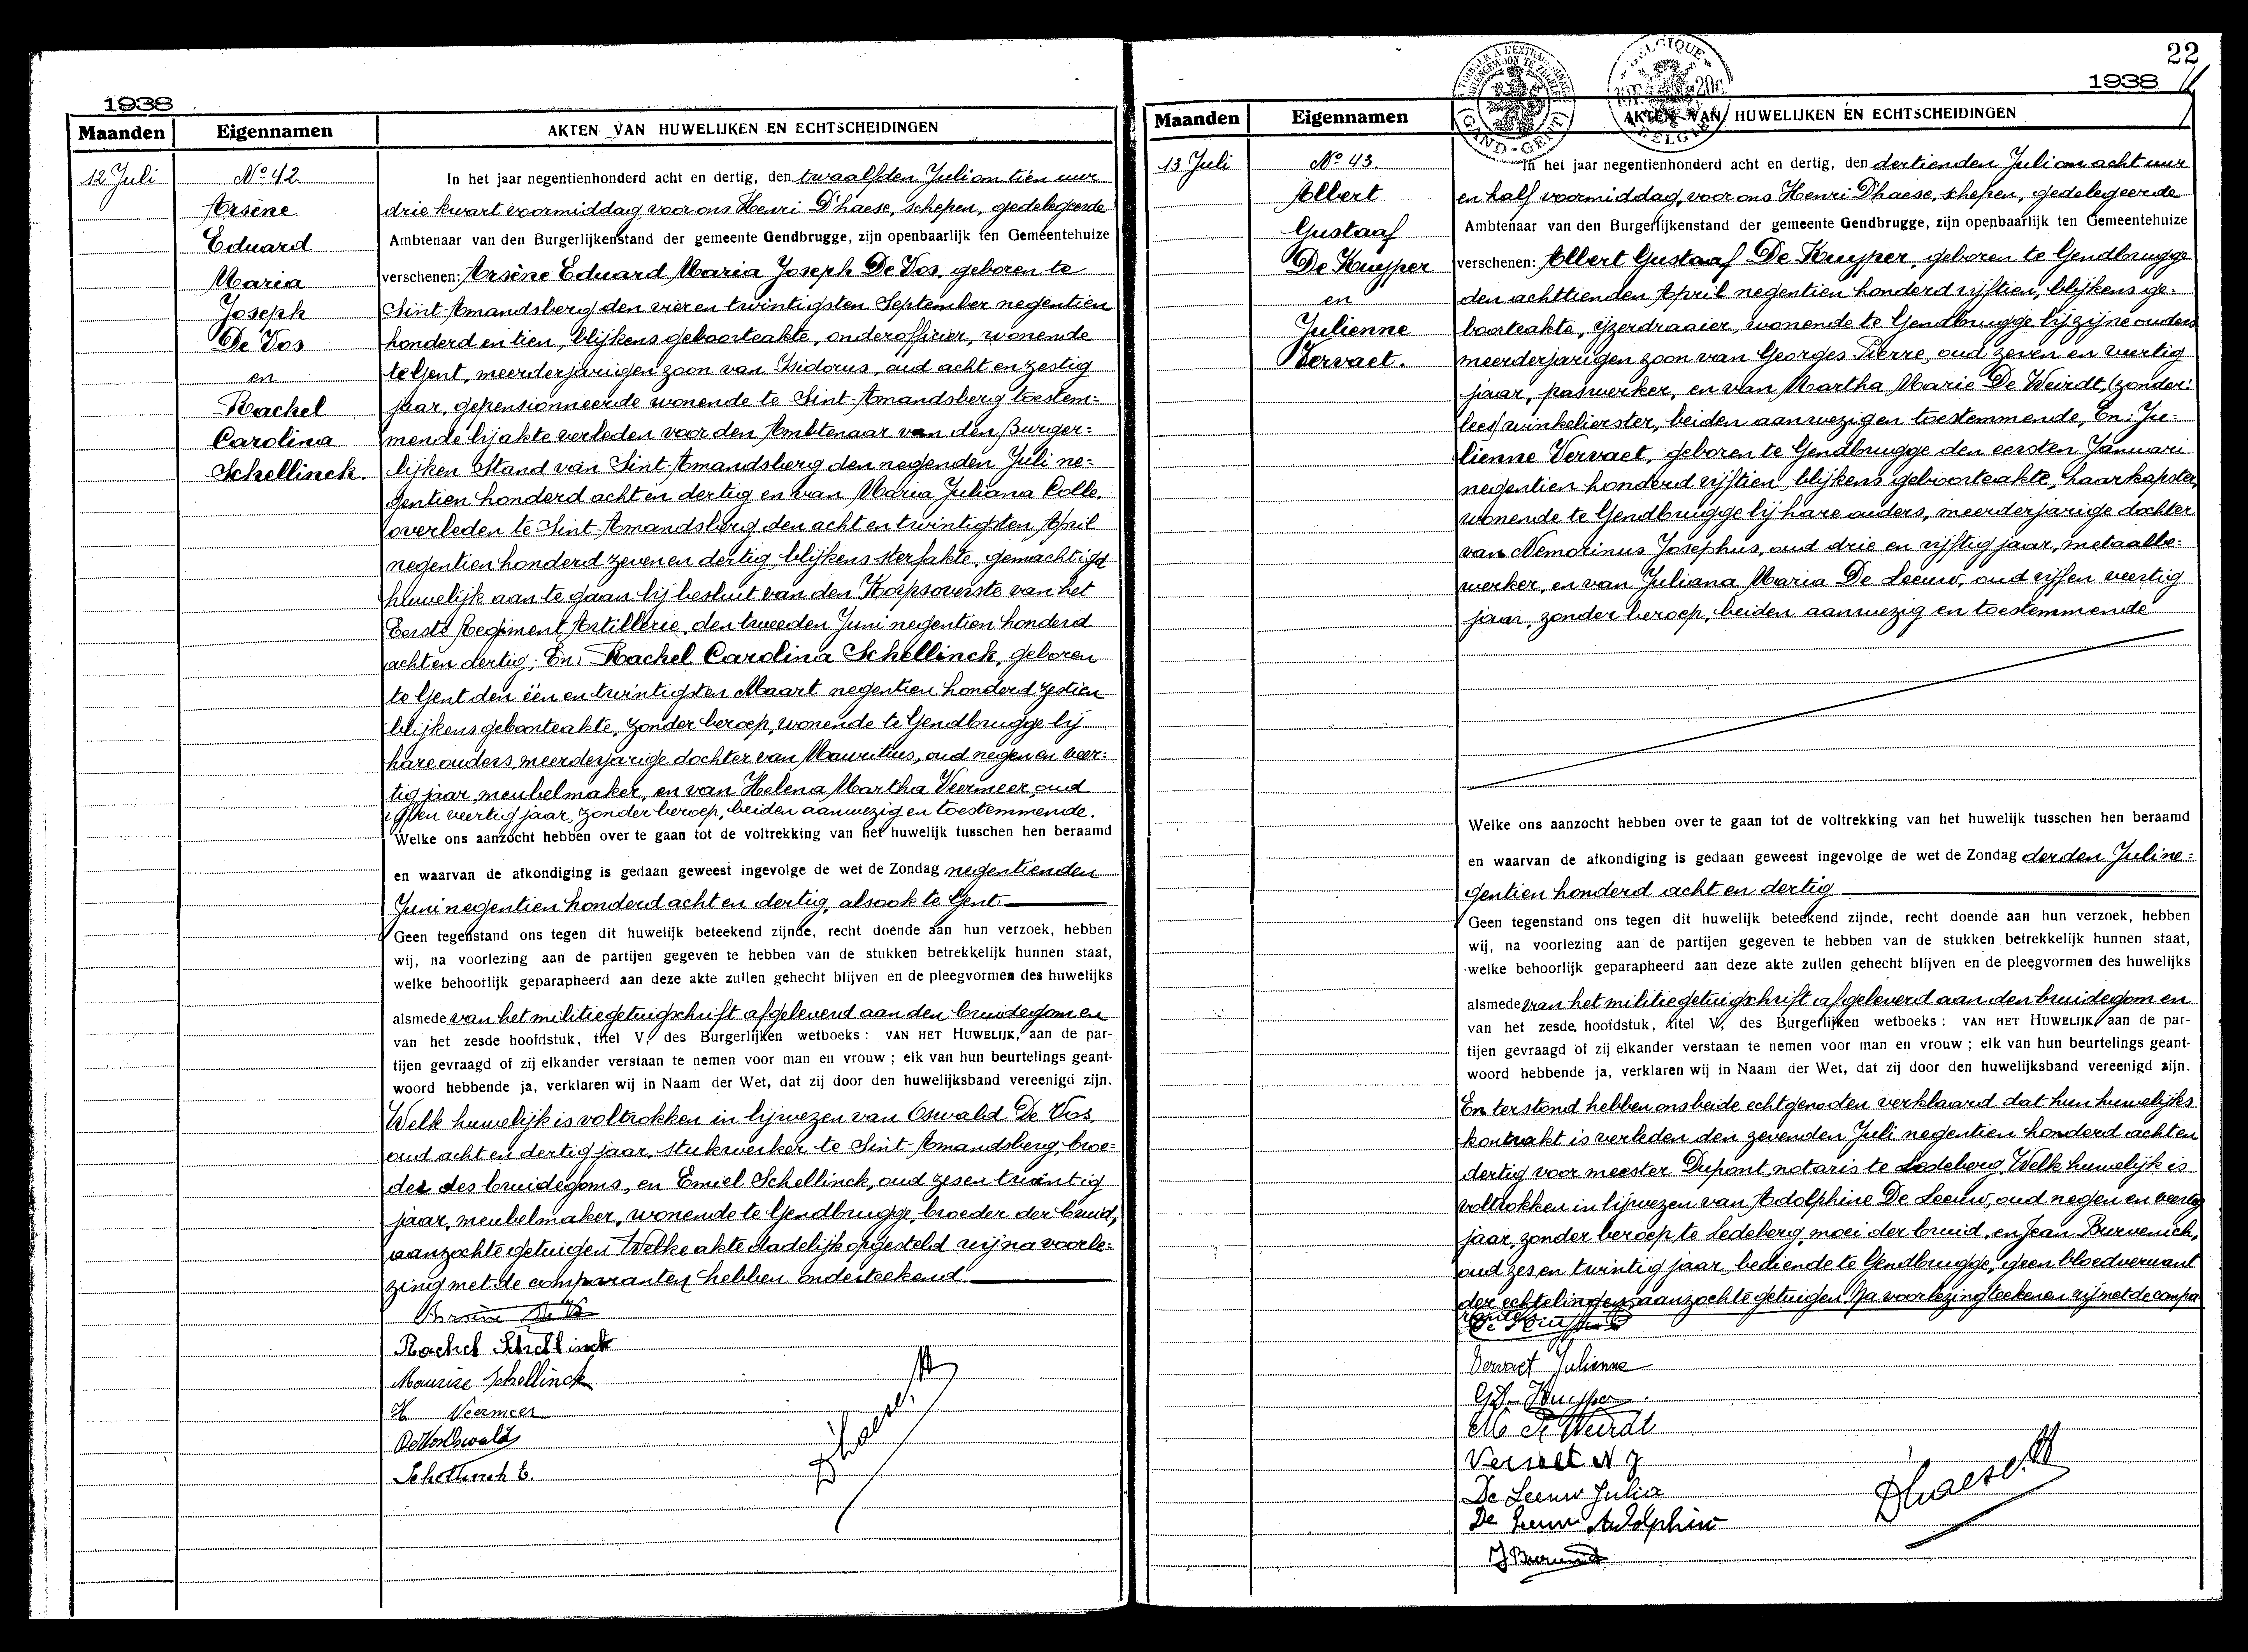 1938
Maanden Eigennamen AKTEN VAN HUWELIJKEN EN ECHTSCHEIDINGEN
12 Juli
No 42.
Arsène
Eduard
Maria
Joseph
De Vos
en
Rachel
Carolina
Schellinck.
In het jaar negentienhonderd acht en dertig, den twaalfden Juli om tien uur
drie kwart voormiddag voor ons Henri D'haese, schepen, gedelegeerde
Ambtenaar van den Burgerlijkenstand der gemeente Gendbrugge, zijn openbaarlijk ten Gemeentehuize
verschenen: Arsène Eduard Maria Joseph De Vos, geboren te
Sint-Amandsberg den vier en twintigsten September negentien
honderd en tien, blijkens geboorteakte, onderofficier, wonende
te Gent, meerderjarigen zoon van Isidorus, oud acht en zestig
jaar, gepensionneerde wonende te Sint-Amandsberg toestem=
mende bij akte verleden voor den Ambtenaar van den Burger=
lijken Stand van Sint-Amandsberg den negenden Juli ne=
gentien honderd acht en dertig en van Maria Juliana Colle,
overleden te Sint-Amandsberg den acht en twintigsten April
negentien honderd zeven en dertig blijkens sterfakte, gemachtigd
huwelijk aan te gaan bij besluit van den Korpsoverste van het
Eerste Regiment Artillerie, den tweeden Juni negentien honderd
acht en dertig; En: Rachel Carolina Schellinck, geboren
te Gent den één en twintigsten Maart negentien honderd zestien
blijkens geboorteakte, zonder beroep, wonende te Gendbrugge bij
hare ouders, meerderjarige dochter van Mauritius, oud negen en veer=
tig jaar, meubelmaker, en van Helena Martha Veermeer, oud
vijf en veertig jaar, zonder beroep, beiden aanwezig en toestemmende.
Welke ons aanzocht hebben over te gaan tot de voltrekking van het huwelijk tusschen hen beraamd
en waarvan de afkondiging is gedaan geweest ingevolge de wet de Zondag negentienden
Juni negentien honderd acht en dertig, alsook te Gent
Geen tegenstand ons tegen dit huwelijk beteekend zijnde, recht doende aan hun verzoek, hebben
wij, na voorlezing aan de partijen gegeven te hebben van de stukken betrekkelijk hunnen staat,
welke behoorlijk geparapheerd aan deze akte zullen gehecht blijven en de pleegvormen des huwelijks
alsmede van het militiegetuigschrift afgeleverd aan den bruidegom en
van het zesde hoofdstuk, titel V, des Burgerlijken wetboeks: VAN HET HUWELIJK, aan de par-
tijen gevraagd of zij elkander verstaan te nemen voor man en vrouw; elk van hun beurtelings geant-
woord hebbende ja, verklaren wij in Naam der Wet, dat zij door den huwelijksband vereenigd zijn.
Welk huwelijk is voltrokken in bijwezen van Oswald De Vos,
oud acht en dertig jaar, stukwerker te Sint-Amandsberg, broe=
der des bruidegoms, en Emiel Schellinck, oud zes en twintig
jaar, meubelmaker, wonende te Gendbrugge, broeder der bruid,
aanzochte getuigen. Welke akte dadelijk opgesteld wij na voorle=
zing met de comparanten hebben onderteekend
Arsène De Vos
Rachel Schellinck
Maurice Schellinck
H Veermeer
De Vos Oswald
Schellinck E.
D'haese H
22
1938
Maanden Eigennamen AKTEN VAN HUWELIJKEN EN ECHTSCHEIDINGEN
GAND-GENT
BELGIQUE
BELGIE
13 Juli
No 43.
Albert
Gustaaf
De Kuyper
en
Julienne
Vervaet.
In het jaar negentienhonderd acht en dertig, den dertienden Juli om acht uur
en half voormiddag, voor ons Henri D'haese, schepen, gedelegeerde
Ambtenaar van den Burgerlijkenstand der gemeente Gendbrugge, zijn openbaarlijk ten Gemeentehuize
verschenen: Albert Gustaaf De Kuyper, geboren te Gendbrugge
den achttienden April negentien honderd vijftien, blijkens ge=
boorteakte, ijzerdraaier, wonende te Gendbrugge bij zijne ouders
meerderjarigen zoon van Georges Pierre, oud zeven en veertig
jaar, paswerker, en van Martha Marie De Weirdt, (zonder:
lees) winkelierster, beiden aanwezig en toestemmende, En: Ju=
lienne Vervaet, geboren te Gendbrugge den eersten Januari
negentien honderd vijftien, blijkens geboorteakte, haarkapster,
wonende te Gendbrugge bij hare ouders, meerderjarige dochter
van Nemorinus Josephus, oud drie en vijftig jaar, metaalbe=
werker, en van Juliana Maria De Leeuw, oud vijf en veertig
jaar, zonder beroep, beiden aanwezig en toestemmende
Welke ons aanzocht hebben over te gaan tot de voltrekking van het huwelijk tusschen hen beraamd
en waarvan de afkondiging is gedaan geweest ingevolge de wet de Zondag derden Juli ne=
gentien honderd acht en dertig
Geen tegenstand ons tegen dit huwelijk beteekend zijnde, recht doende aan hun verzoek, hebben
wij, na voorlezing aan de partijen gegeven te hebben van de stukken betrekkelijk hunnen staat,
welke behoorlijk geparapheerd aan deze akte zullen gehecht blijven en de pleegvormen des huwelijks
alsmede van het militiegetuigschrift afgeleverd aan den bruidegom en
van het zesde hoofdstuk, titel V, des Burgerlijken wetboeks: VAN HET HUWELIJK, aan de par-
tijen gevraagd of zij elkander verstaan te nemen voor man en vrouw; elk van hun beurtelings geant-
woord hebbende ja, verklaren wij in Naam der Wet, dat zij door den huwelijksband vereenigd zijn.
En terstond hebben ons beide echtgenooten verklaard dat hun huwelijks
kontrakt is verleden den zevenden Juli negentien honderd acht en
dertig voor meester Dupont, notaris te Ledeberg. Welk huwelijk is
voltrokken in bijwezen van Adolphine De Leeuw, oud negen en veertig
jaar, zonder beroep te Ledeberg, moei der bruid, en Jean Burvenich,
oud zes en twintig jaar, bediende te Gendbrugge, geen bloedverwant
der echtelingen, aanzochte getuigen. Na voorlezing teekenen wij met de compa
ranten
De Kuyper A
Vervaet Julienne
G De Kuyper
M De Weirdt
Vervaet N J
De Leeuw Julia
De Leeuw Adolphine
J Burvenich
D'haese H